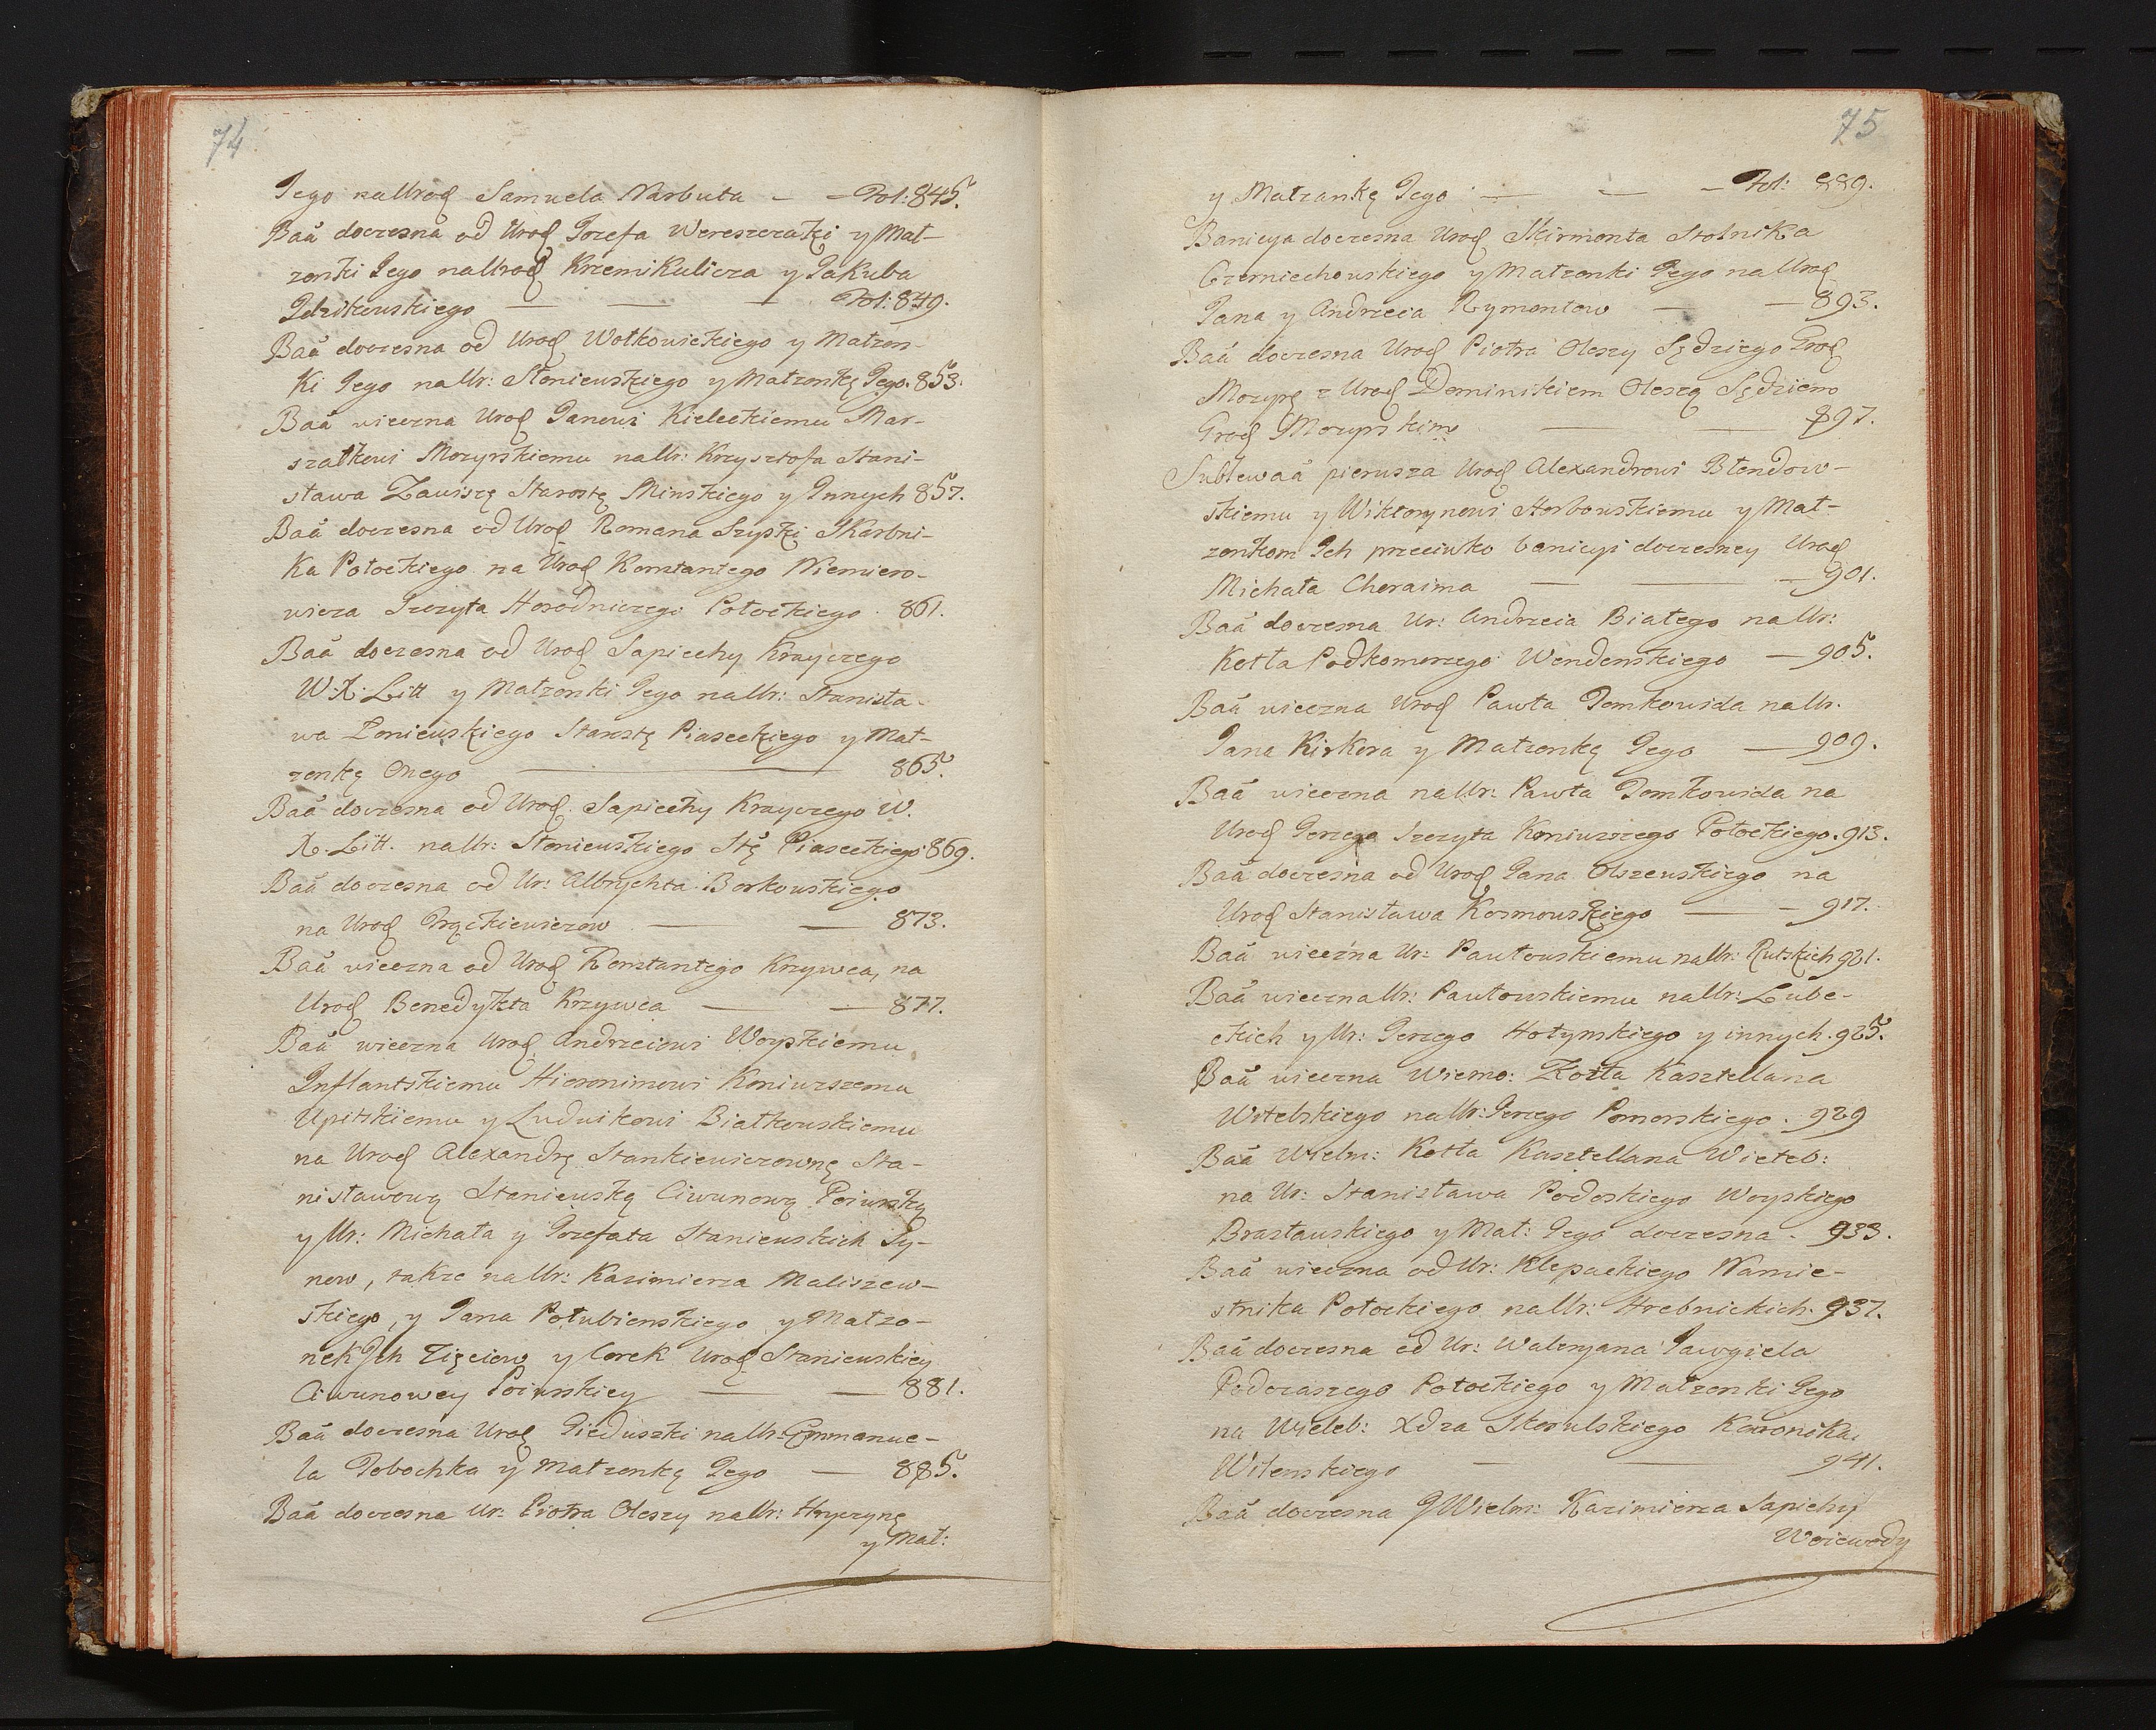 74
Jego na Urod Samuela Narbuta — — Fol: 845.
Baã doczesna od Urod Jozefa Wereszczaki y Mał-
zonki Jego na Urod Krzemikulicza y Jakuba
Jdzikowskiego — — — Fol: 849.
Baã doczesna od Urod Wołkowickiego y Małzon-
ki Jego na Ur: Słoniewskiego y Małzonkę Jego. 853.
Baã wieczna Urod Janowi Kieleckiemu Mar-
szałkowi Mozyrskiemu na Ur: Krzysztofa Stani-
sława Zawiszę Starostę Minskiego y Jnnych 857.
Baã doczesna od Urod Romana Szyski Skarbni-
ka Połockiego na Urod Konstantego Niemiero-
wicza Szczyta Horodniczego Połockiego. 861.
Baã doczesna od Urod Sapiechy Krayczego
W. X. Litt y Małzonki Jego na Ur: Stanisła-
wa Łoniewskiego Starostę Piaseckiego y Mał-
zonkę Onego — 865.
Baã doczesna od Urod. Sapiechy Krayczego W.
X. Litt. na Ur: Słoniewskiego Stę Piaseckiego 869.
Baã doczesna od Ur: Albrychta Borkowskiego
na Urod — — 873.
Baã wieczna od Urod Konstantego Krzywca, na
Urod Benedykta Krzywca — — 877.
Baã wieczna Urod Andrzeiowi Woyskiemu
Jnflantskiemu Hieronimowi Koniuszemu
Upitskiemu y Ludwikowi Białkowskiemu
na Urod Alexandrę Stankiewiczownę Sta-
nisławową Staniewską Ciwunową Poiurską
y Ur: Michała y Jozefata Staniewskich Sy-
now, także na Ur: Kazimierza Maliszew-
skiego, y Jana Połubienskiego y Małzo-
nek Jch Zięciow y Corek Urod Staniewskiey
Ciwunowey Poiurskiey — — 881.
Baã doczesna Urod Gieduszki na Ur: Emmanue-
la Jobochka y Małzonkę Jego — 885.
Baã doczesna Ur: Piotra Oleszy na Ur: Hryczynę
y Mał:
75
y Małzankę Jego — — — Fol: 889.
Banicya doczesna Urod Skirmonta Stolnika
Czerniechowskiego y Małzonki Jego na Urod
Jana y Andrzeia Rymontow — — 893.
Baã doczesna Urod Piotra Oleszy Sędziego Grod
Mozyrs z Urod Dominikiem Oleszą Sędziem
Grod Mozyrskim — — 897.
Sublewaã pierwsza Urod Alexandrowi Błendow-
skiemu y Wiktorynowi Horbowskiemu y Mał-
zonkom Jch przeciwko banicyi doczesney Urod
Michała Choraima — — — 901.
Baã doczesna Ur: Andrzeia Białego na Ur:
Kotła Podkomorzego Wendenskiego — 905.
Baã wieczna Urod Pawła Jomkowida na Ur.
Jana Kirkora y Małzonkę Jego — 909.
Baã wieczna na Ur: Pawła Jomkowida na
Urod Jerzego Szczyta Koniuszego Połockiego. 913.
Baã doczesna od Urod Jana Olszewskiego na
Urod Stanisława Kosmowskiego — — 917.
Baã wieczna Ur: Pawłowskiemu na Ur: Rutskich 921.
Baã wieczna Ur: Pawłowskiemu na Ur: Lube-
ckich y Ur: Jerzego Hołynskiego y innych. 925.
Baã wieczna Wiemo: Kotła Kasztellana
Witebskiego na Ur: Jerzego Pomorskiego. 929
Baã Wielm: Kotła Kasztellana Witeb:
na Ur: Stanisława Podoskiego Woyskiego
Brasławskiego y Mał: Jego doczesna. 933.
Baã wieczna od Ur: Klepackiego Namie-
stnika Połockiego na Ur: Hrebnickich. 937.
Baã doczesna od Ur: Waleryana Jawgiela
Podczaszego Połockiego y Małzonki Jego
na Wieleb: Xdza Skorulskiego Kanonika
Wilenskiego — — 941.
Baã doczesna JWielm: Kazimierza Sapiehy
Woiewody